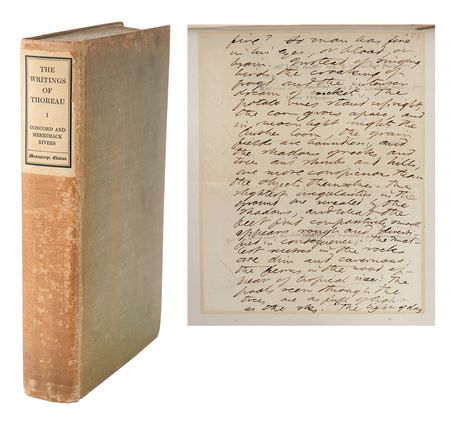 THE
WRITINGS
OF
THOREAU
I
CONCORD AND
MERRIMACK
RIVERS
Manuscript Edition
fire? So man has fire
in his eyes, or blood, or
brain. Instead of singing
birds, the croaking of
frogs and the intenser
dream of crickets. The
potato vines stand upright
the corn grows apace, and
in moon light nights the
bushes loom, the grain
fields are boundless, and
the shadows of rocks and
trees and shrubs and hills,
are more conspicuous than
the objects themselves. The
slightest irregularities in the
ground are revealed by the
shadows, and what the
feet find comparatively smooth
appears rough and diversi-
fied in consequence. The smal-
lest recesses in the rocks
are dim and cavernous;
the ferns in the wood ap-
pear of tropical size. The
pools seen through the
trees are as full of light
as the sky. The light of day